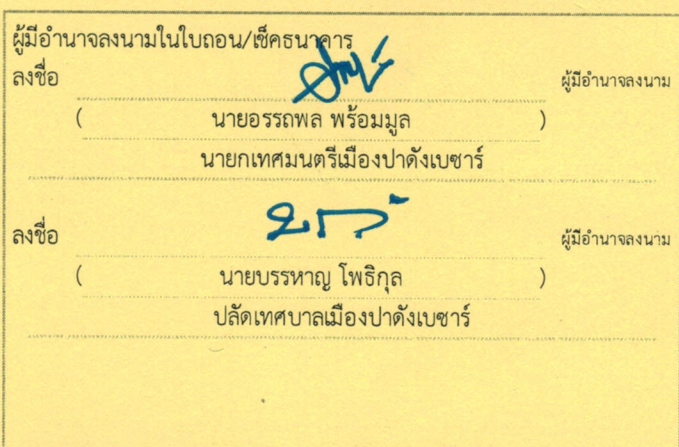 ผู้มีอำนาจลงนามในใบถอน/เช็คธนาคาร
ลงชื่อ ผู้มีอำนาจลงนาม
( นายอรรถพล พร้อมมูล )
นายกเทศมนตรีเมืองปาดังเบซาร์
ลงชื่อ ผู้มีอำนาจลงนาม
( นายบรรหาญ โพธิกุล )
ปลัดเทศบาลเมืองปาดังเบซาร์